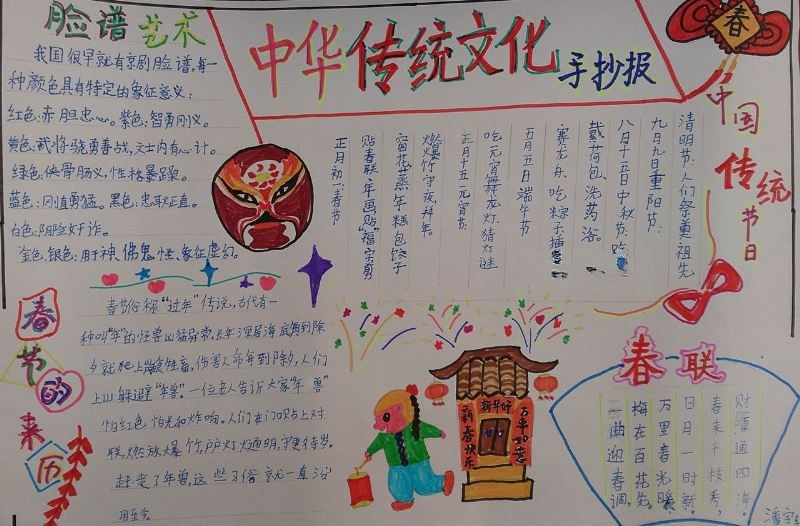 中华传统文化
手抄报
脸谱艺术
我国很早就有京剧脸谱,每一
种颜色具有特定的象征意义:
红色:赤胆忠心。紫色:智勇刚义。
黄色:武将骁勇善战,文士内有心计。
绿色:侠骨肠义,性格暴躁。
蓝色:刚直勇猛。黑色:忠耿正直。
白色:阴险奸诈。
金色、银色:用于神、佛、鬼、怪、象征虚幻。
春
中国传统节日
清明节:人们祭奠祖先
九月九日重阳节:
八月十五日中秋节:吃
戴荷包、洗药浴。
赛龙舟、吃粽子、插
五月五日端午节
吃元宵、舞龙灯、猜灯谜
正月十五元宵节:
燃爆竹、守夜、拜年。
窗花、蒸年糕、包饺子
贴春联、年画、贴“福”字、剪
正月初一春节
春节的来历
春节俗称“过年”传说,古代有一
种叫“年”的怪兽凶猛异常,长年深居海底,每到除
夕就爬上岸食牲畜,伤害人命每到除夕,人们
上山躲避“年兽”。一位老人告诉大家“年兽”
怕红色、怕光和炸响。人们在门口贴上对
联,燃放爆竹,户户灯火通明,守更待岁。
赶走了年兽,这些习俗就一直沿
用至今。
新华好
新春快乐
万事如意
春联
财源通四海。
春来千枝秀,
日月一时新。
万里春光暖
梅在百花先。
一曲迎春调,